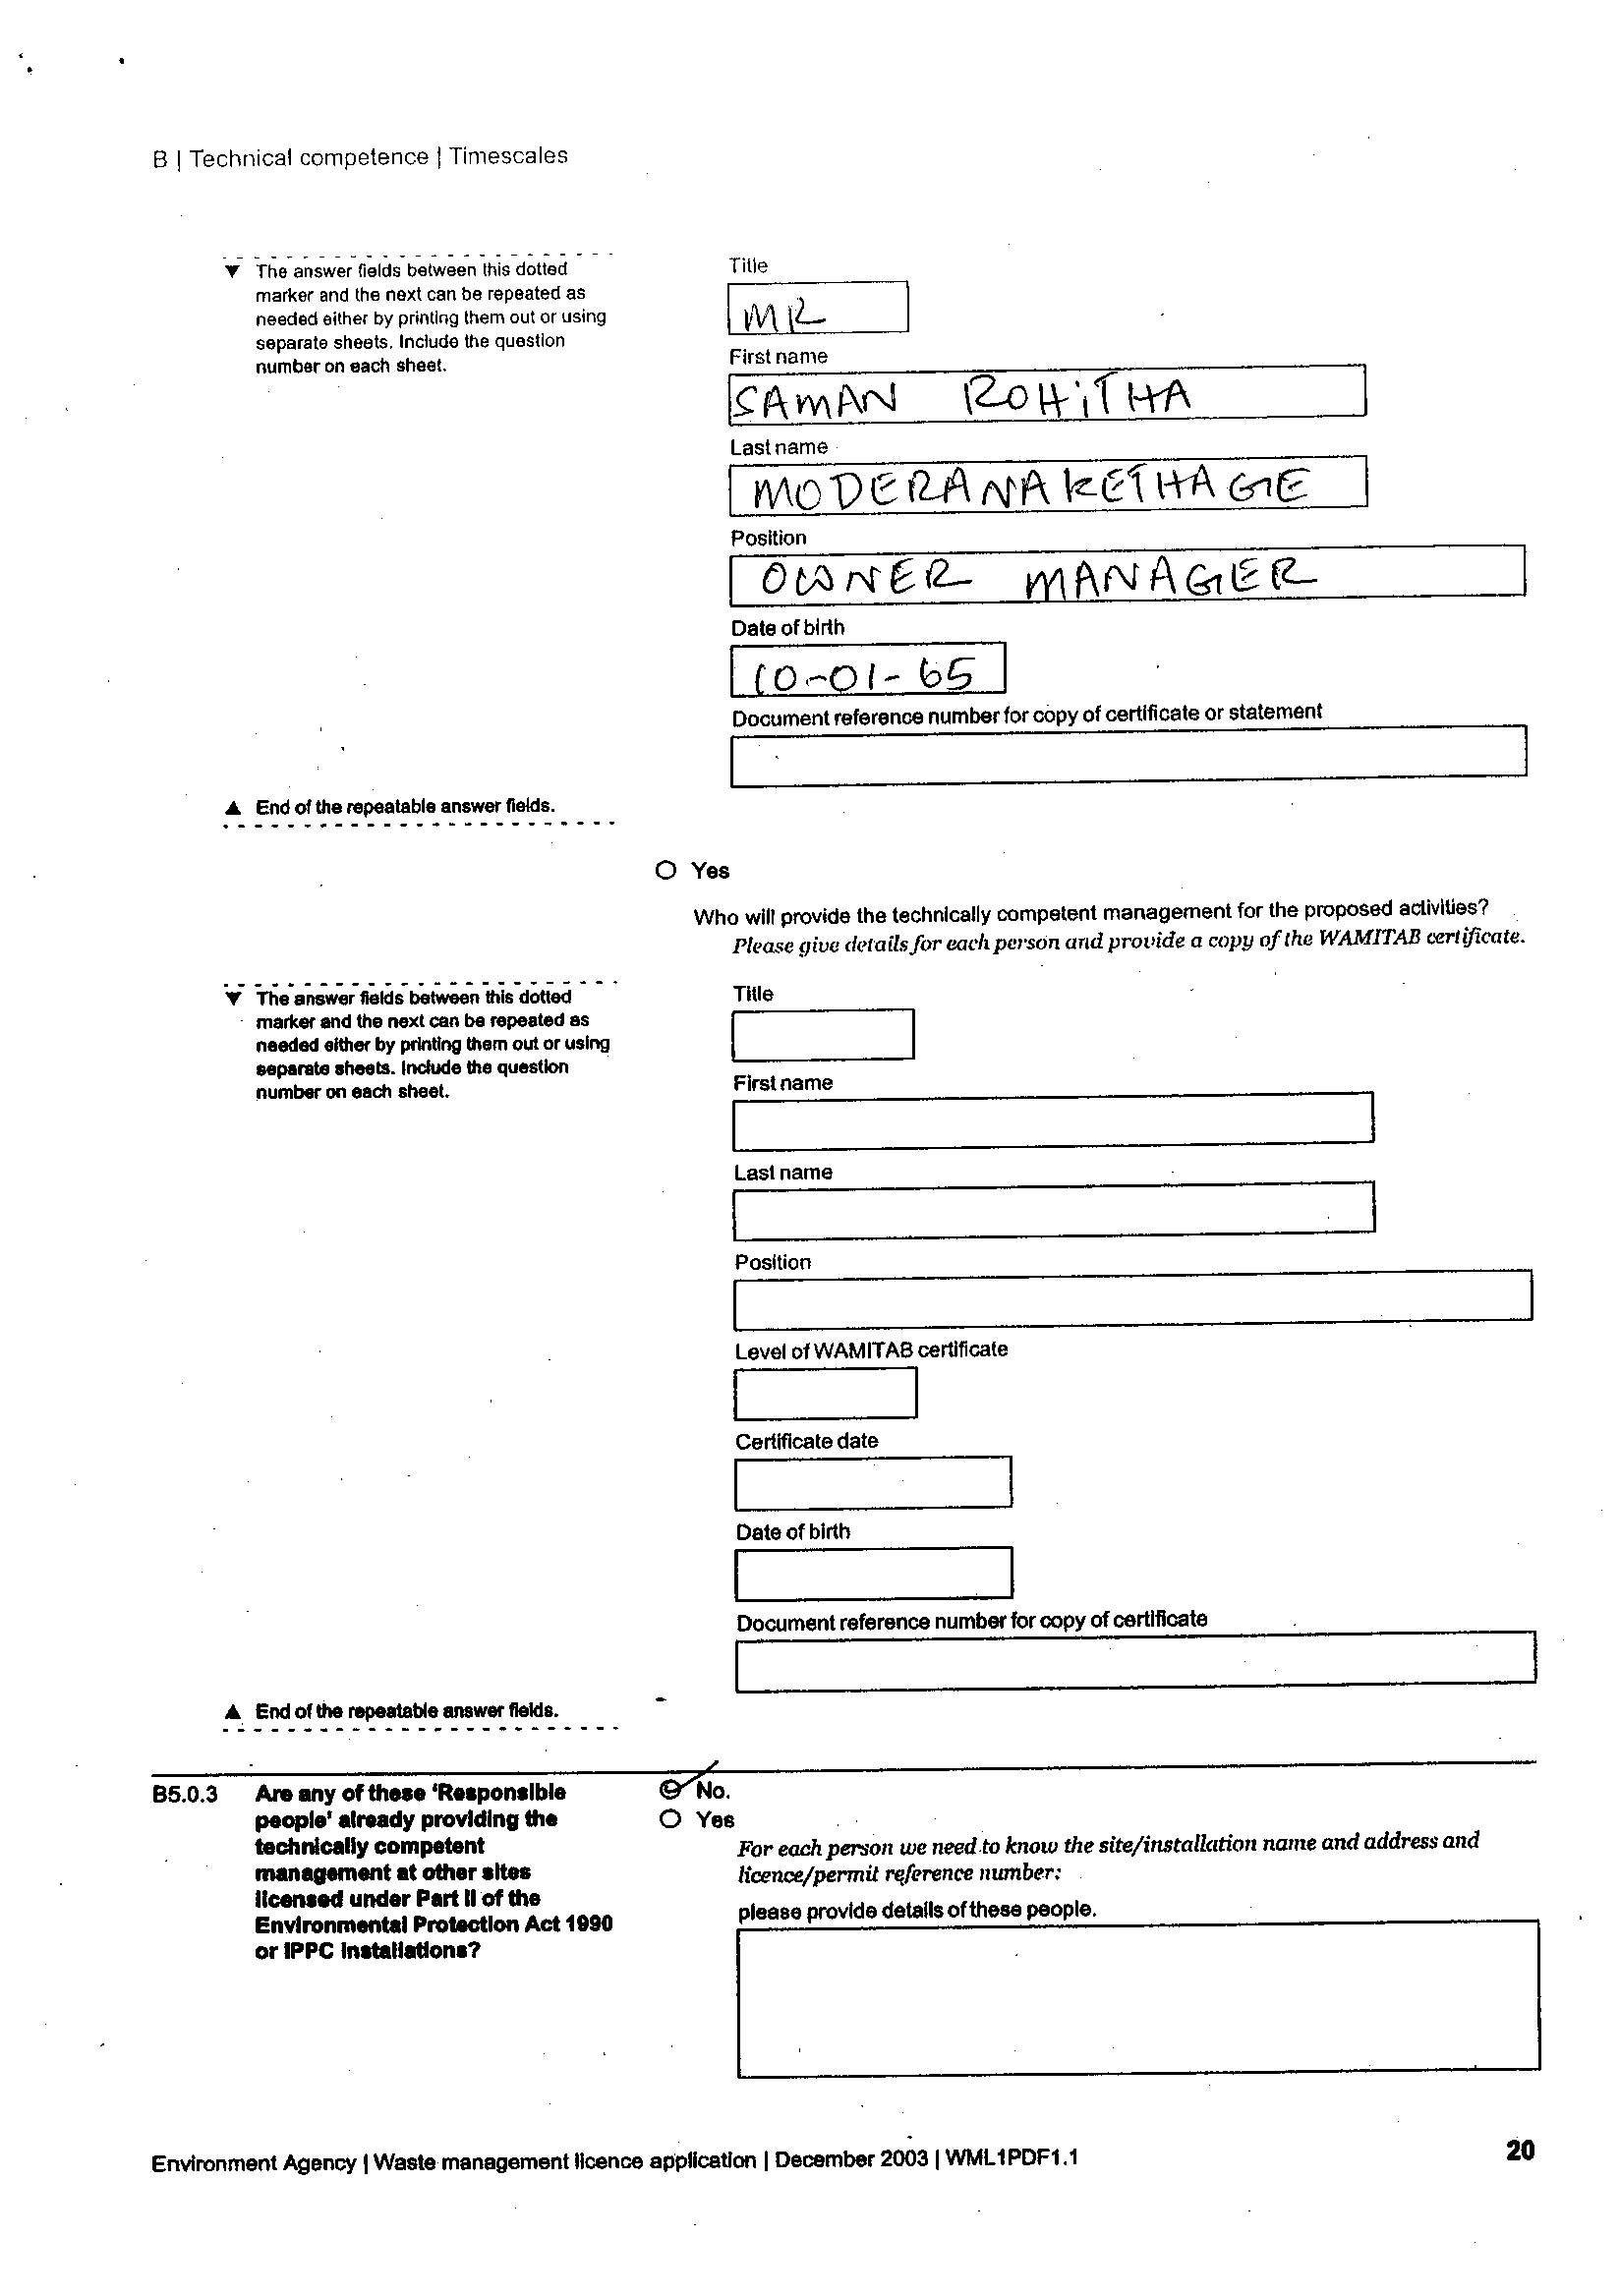 B | Technical competence | Timescales
▼ The answer fields between this dotted
marker and the next can be repeated as
needed either by printing them out or using
separate sheets. Include the question
number on each sheet.
Title
MR
First name
SAMAN ROHiTHA
Last name
MODERANAKETHAGE
Position
OWNER MANAGER
Date of birth
10-01-65
Document reference number for copy of certificate or statement
▲ End of the repeatable answer fields.
Yes
Who will provide the technically competent management for the proposed activities?
Please give details for each person and provide a copy of the WAMITAB certificate.
▼ The answer fields between this dotted
marker and the next can be repeated as
needed either by printing them out or using
separate sheets. Include the question
number on each sheet.
Title
First name
Last name
Position
Level of WAMITAB certificate
Certificate date
Date of birth
Document reference number for copy of certificate
▲ End of the repeatable answer fields.
B5.0.3 Are any of these 'Responsible
people' already providing the
technically competent
management at other sites
licensed under Part II of the
Environmental Protection Act 1990
or IPPC Installations?
No.
Yes
For each person we need to know the site/installation name and address and
licence/permit reference number:
please provide details of these people.
Environment Agency | Waste management licence application | December 2003 | WML1PDF1.1
20